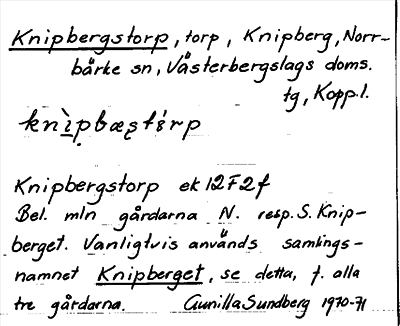 Knipbergstorp, torp, Knipberg, Norr-
bärke sn, Västerbergslags doms.
tg, Kopp.l.
knìpbæștórp
Knipbergstorp ek 12F2f
Bel. mln gårdarna N. resp. S. Knip-
berget. Vanligtvis används samlings-
namnet Knipberget, se detta, f. alla
tre gårdarna. Gunilla Sundberg 1970-71